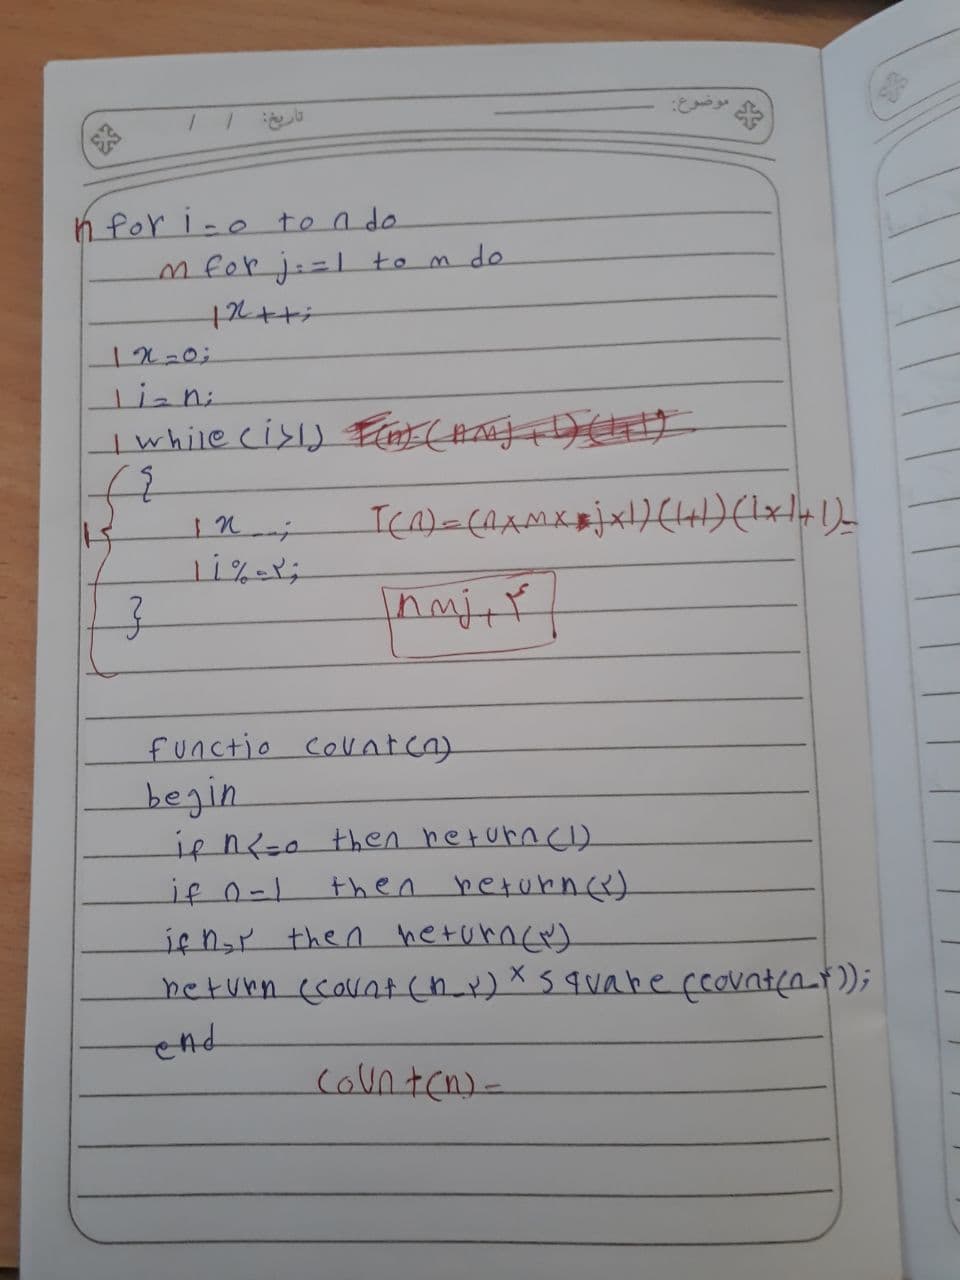 موضوع:
تاریخ: / /
n for i=0 to n do
m for j:=1 to m do
1 x++;
1 x=0;
1 i=n;
1 while (i>1)
{
1 x--;
1 i%=۲;
}
T(n)=(n×m×j×1)(1+1)(1×1+1)=
nmj+۴
functio count(n)
begin
if n<=0 then return(1)
if n=1 then return(۲)
if n=۲ then return(۳)
return (count(n-۲) × square (count(n-۴));
end
count(n)=